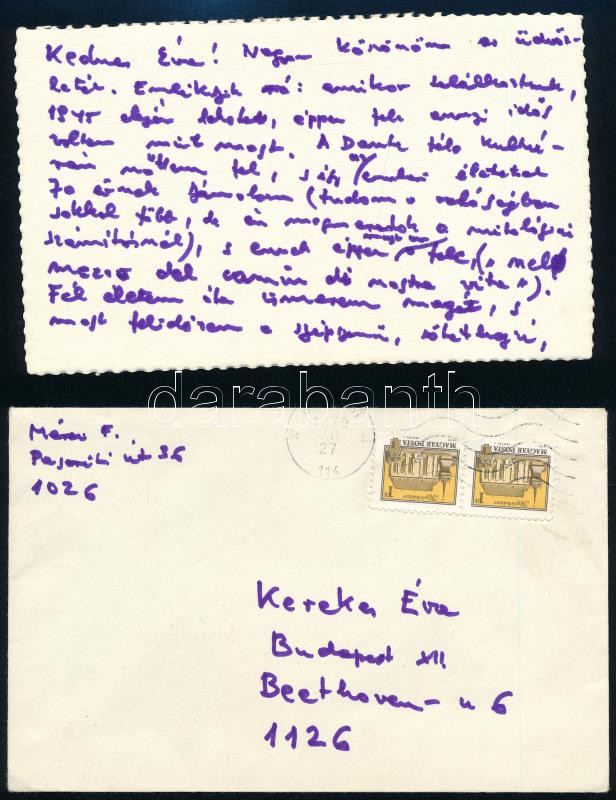 Kedves Éva! Nagyon köszönöm az üdvöz-
letét. Emlékszik rá: amikor találkoztunk,
1945 elején lehetett, éppen fele annyi idős
voltem mint most. A Dante féle kultú-
rán nőttem fel, s így emberi életeket
70 évnek számolom (tudom a valóságban
sokkal több, de én maradok a mitológiai
számításnál), s ennek éppen fele, („mel
mezzo del camin di nostra vita").
Fél életem óta ismerem magát, s
most felidézem a szépszemű, sötéthajú,
darabanth
Mérei F.
Pasaréti út 36
1026
27
MAGYAR POSTA
MAGYAR POSTA
1Ft
1Ft
Kerekes Éva
Budapest XII
Beethoven-u 6
1126